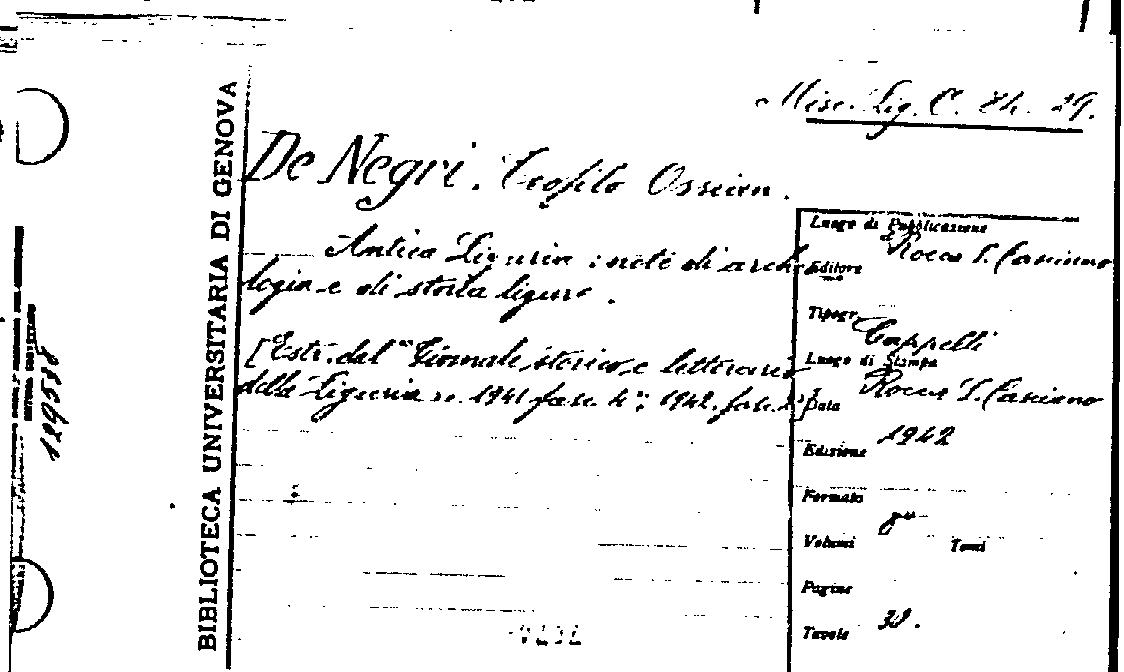 Misc. Lig. C. 84. 29.
BIBLIOTECA UNIVERSITARIA DI GENOVA
De Negri. Teofilo Ossian.
Antica Liguria : note di archeo
logia e di storia ligure.
[Estr. dal "Giornale storico e letterario
della Liguria a. 1941 fasc. 4°; 1942, fasc.
Luogo di Pubblicazione
Rocca S. Casciano
Editore
Tipogr.
Cappelli
Luogo di Stampa
Rocca S. Casciano
Data
1942
Edizione
Formato
8°
Volumi Tomi
Pagine
38.
Tavole
129538